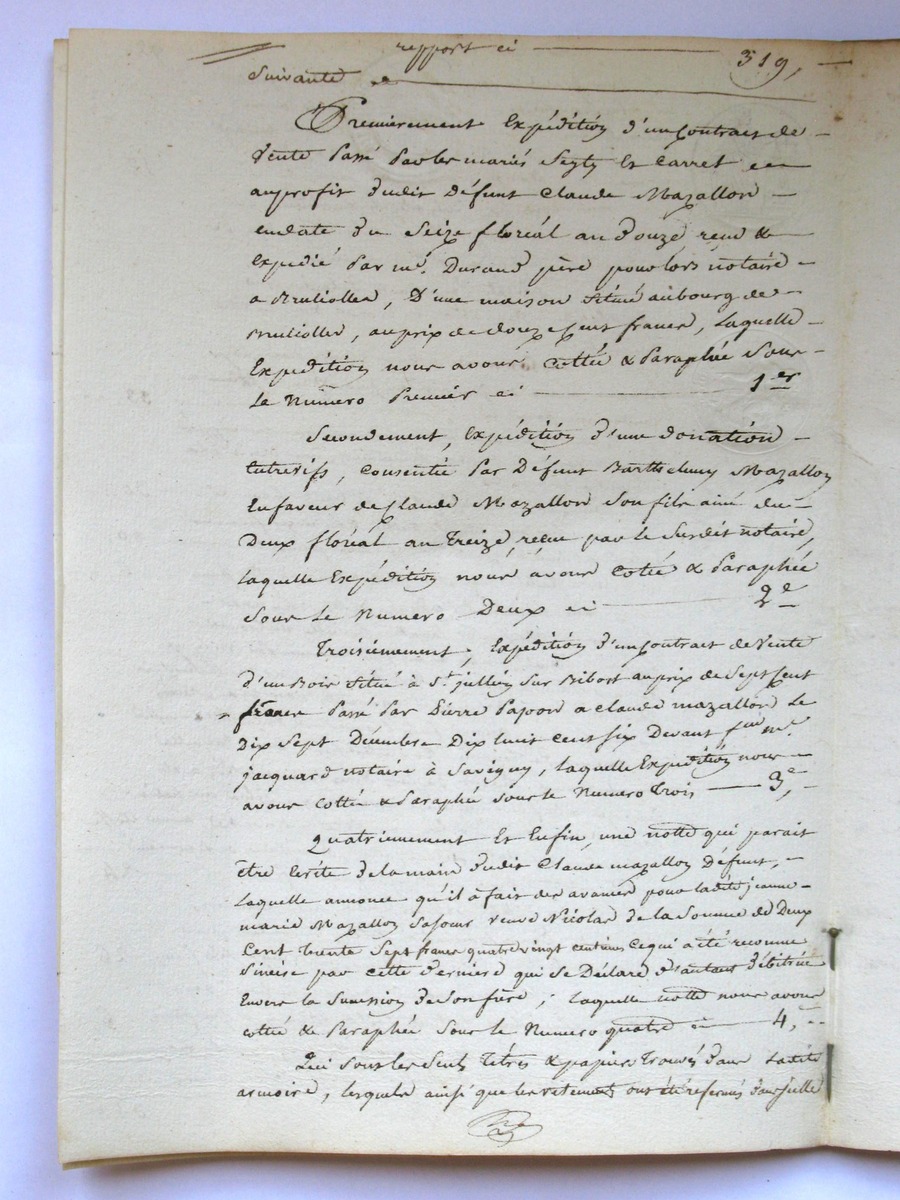 report ci 319,
suivante
Premierement Expédition d'un Contrat de
vente Passé Par les mariés Seyty Et Carret
au profit dudit Défunt Claude Mazallon
en date du Seize floréal an douze reçu &
Expedié Par me. Durand père pour lors notaire
a Brullioles, D'une maison située au bourg de
Brullioles, au prix de douze Cent francs, Laquelle
Expédition nous avons Cottée & Paraphée Sous
Le Numero Premier ci 1er
Secondement, Expédition d'une donation
Entrevifs, Consentie Par Défunt Barthelemy Mazallon
En faveur de Claude Mazallon Son fils ainé du
Deux floréal an Treize, reçue par le Susdit notaire,
Laquelle Expédition nous avons Cotée & Paraphée
Sous Le Numero Deux ci 2e
Troisiemement, Expédition d'un Contrat de Vente
d'un Bois Situé à St. jullien Sur Bibost au prix de Sept Cent
francs Passé Par Pierre Pajoon a Claude mazallon Le
Dix Sept Décembre Dix huit cent six Devant feu me.
jacquard notaire à Savigny, laquelle Expédition nous
avons Cottée & Paraphée Sous le Numero Trois 3e,
Quatriemement Et Enfin, une notte qui parait
être Ecrite de la main dudit Claude mazallon Défunt,
Laquelle annonce qu'il à fait des avances pour ladite jeanne
marie Mazallon Sa sour veuve Nicolas de la Somme de Deux
Cent trente Sept francs quatre vingt centimes Ce qui a été reconnue
Sincère par cette derniere qui Se Déclare d'autant Débitrice
Envers la Succession de Son frère ; laquelle notte nous avons
cottée & Paraphée Sous le Numero quatre ci 4,
Qui Sont les Seuls Titres & papiers Trouvés dans Ladite
armoire, lesquels ainsi que les vetements ont été refermés dans jcelle